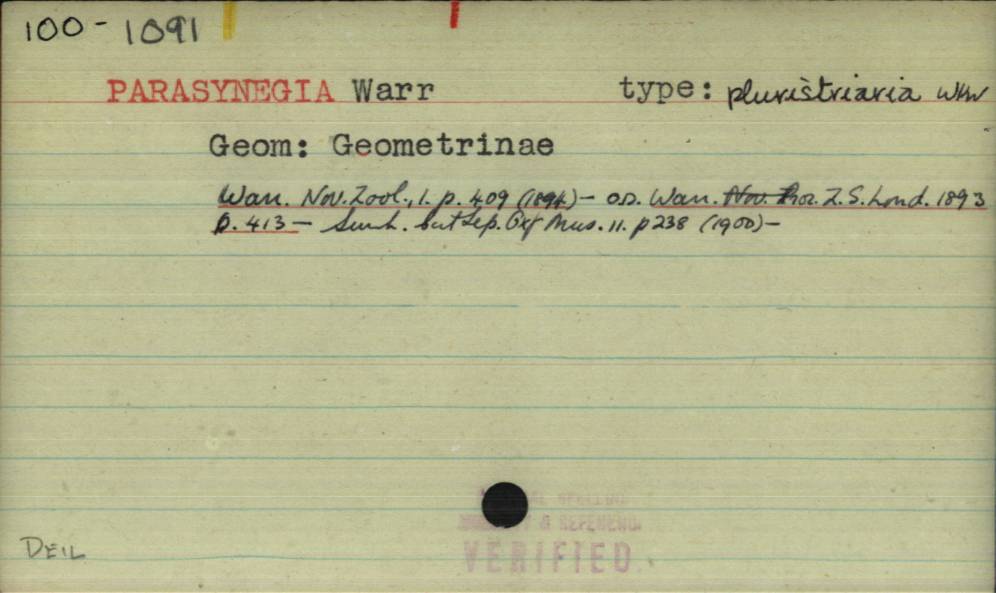 100 - 1091
PARASYNEGIA Warr type: pluristriaria Wkr
Geom: Geometrinae
Warr. Nov. Zool., 1. p. 409 (1894) - O.D. Warr. Nov. Proc. Z.S. Lond. 1893
p. 413 - Swinh. Cat Lep. Oxf Mus. 11. p 238 (1900) -
& REFERENC
VERIFIED
DEIL